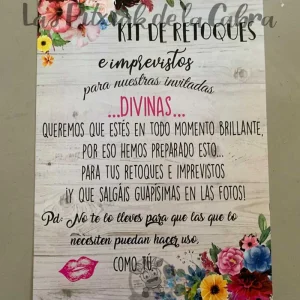 KIT DE RETOQUES
e imprevistos
para nuestras invitadas
...DIVINAS...
QUEREMOS QUE ESTÉS EN TODO MOMENTO BRILLANTE,
POR ESO HEMOS PREPARADO ESTO...
PARA TUS RETOQUES E IMPREVISTOS
¡Y QUE SALGÁIS GUAPÍSIMAS EN LAS FOTOS!
Pd: No te lo lleves para que las que lo
necesiten puedan hacer uso,
COMO TÚ.